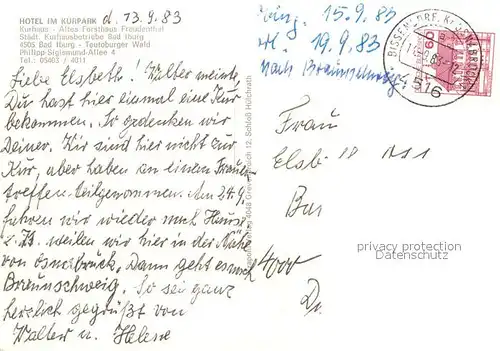 HOTEL IM KURPARK d. 13.9.83
Kurhaus - Altes Forsthaus Freudenthal
Städt. Kurhausbetriebe Bad Iburg
4505 Bad Iburg - Teutoburger Wald
Philipp-Sigismund-Allee 4
Tel.: 05403 / 4011
Liebe Elsbeth! Walter meinte,
Du hast hier einmal eine Kur
bekommen. So gedenken wir
Deiner. Wir sind hier nicht zur
Kur, aber haben an einem
treffen teilgenommen. Am 24.9.
fahren wir wieder nach Hause
z. Zt. weilen wir hier in der Nähe
von Osnabrück. Dann geht es nach
Braunschweig. So sei ganz
herzlich gegrüßt von
Walter u. Helene
12. Schloß Hülchrath
15.9.83
19.9.83
nach
BISSENDORF, KR OSNABRÜCK
60
516
Frau
privacy protection
watermark